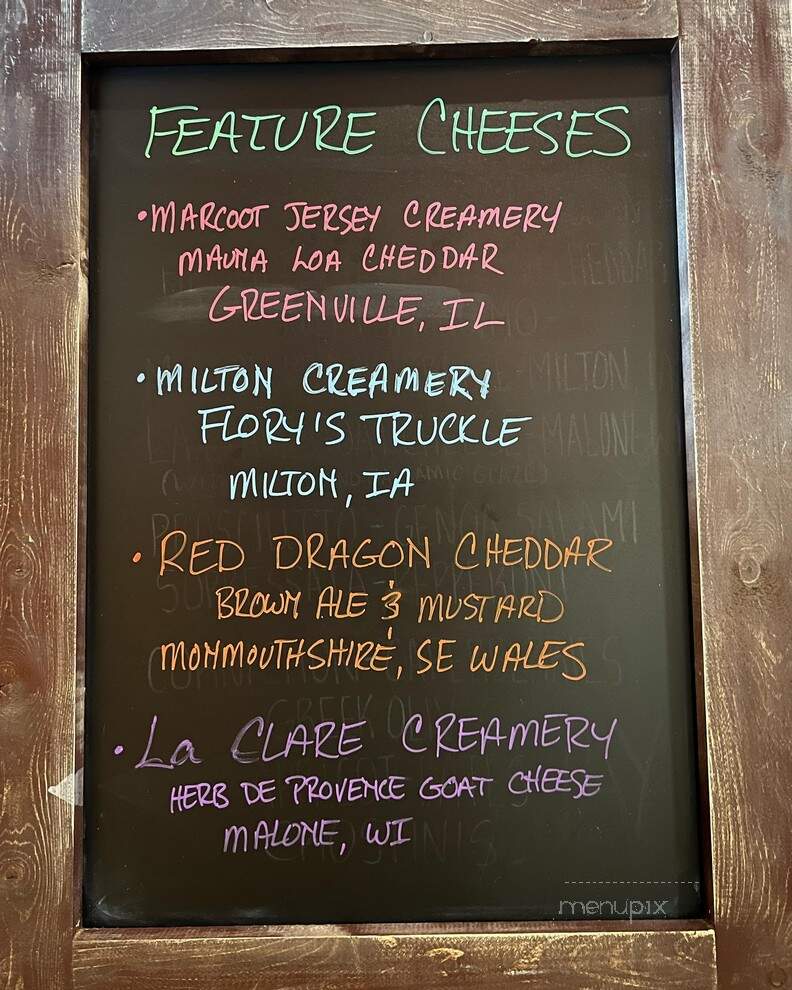 FEATURE CHEESES
• MARCOOT JERSEY CREAMERY
MAUNA LOA CHEDDAR
GREENVILLE, IL
• MILTON CREAMERY
FLORY'S TRUCKLE
MILTON, IA
• RED DRAGON CHEDDAR
BROWN ALE & MUSTARD
MONMOUTHSHIRE, SE WALES
• La CLARE CREAMERY
HERB DE PROVENCE GOAT CHEESE
MALONE, WI
menupix